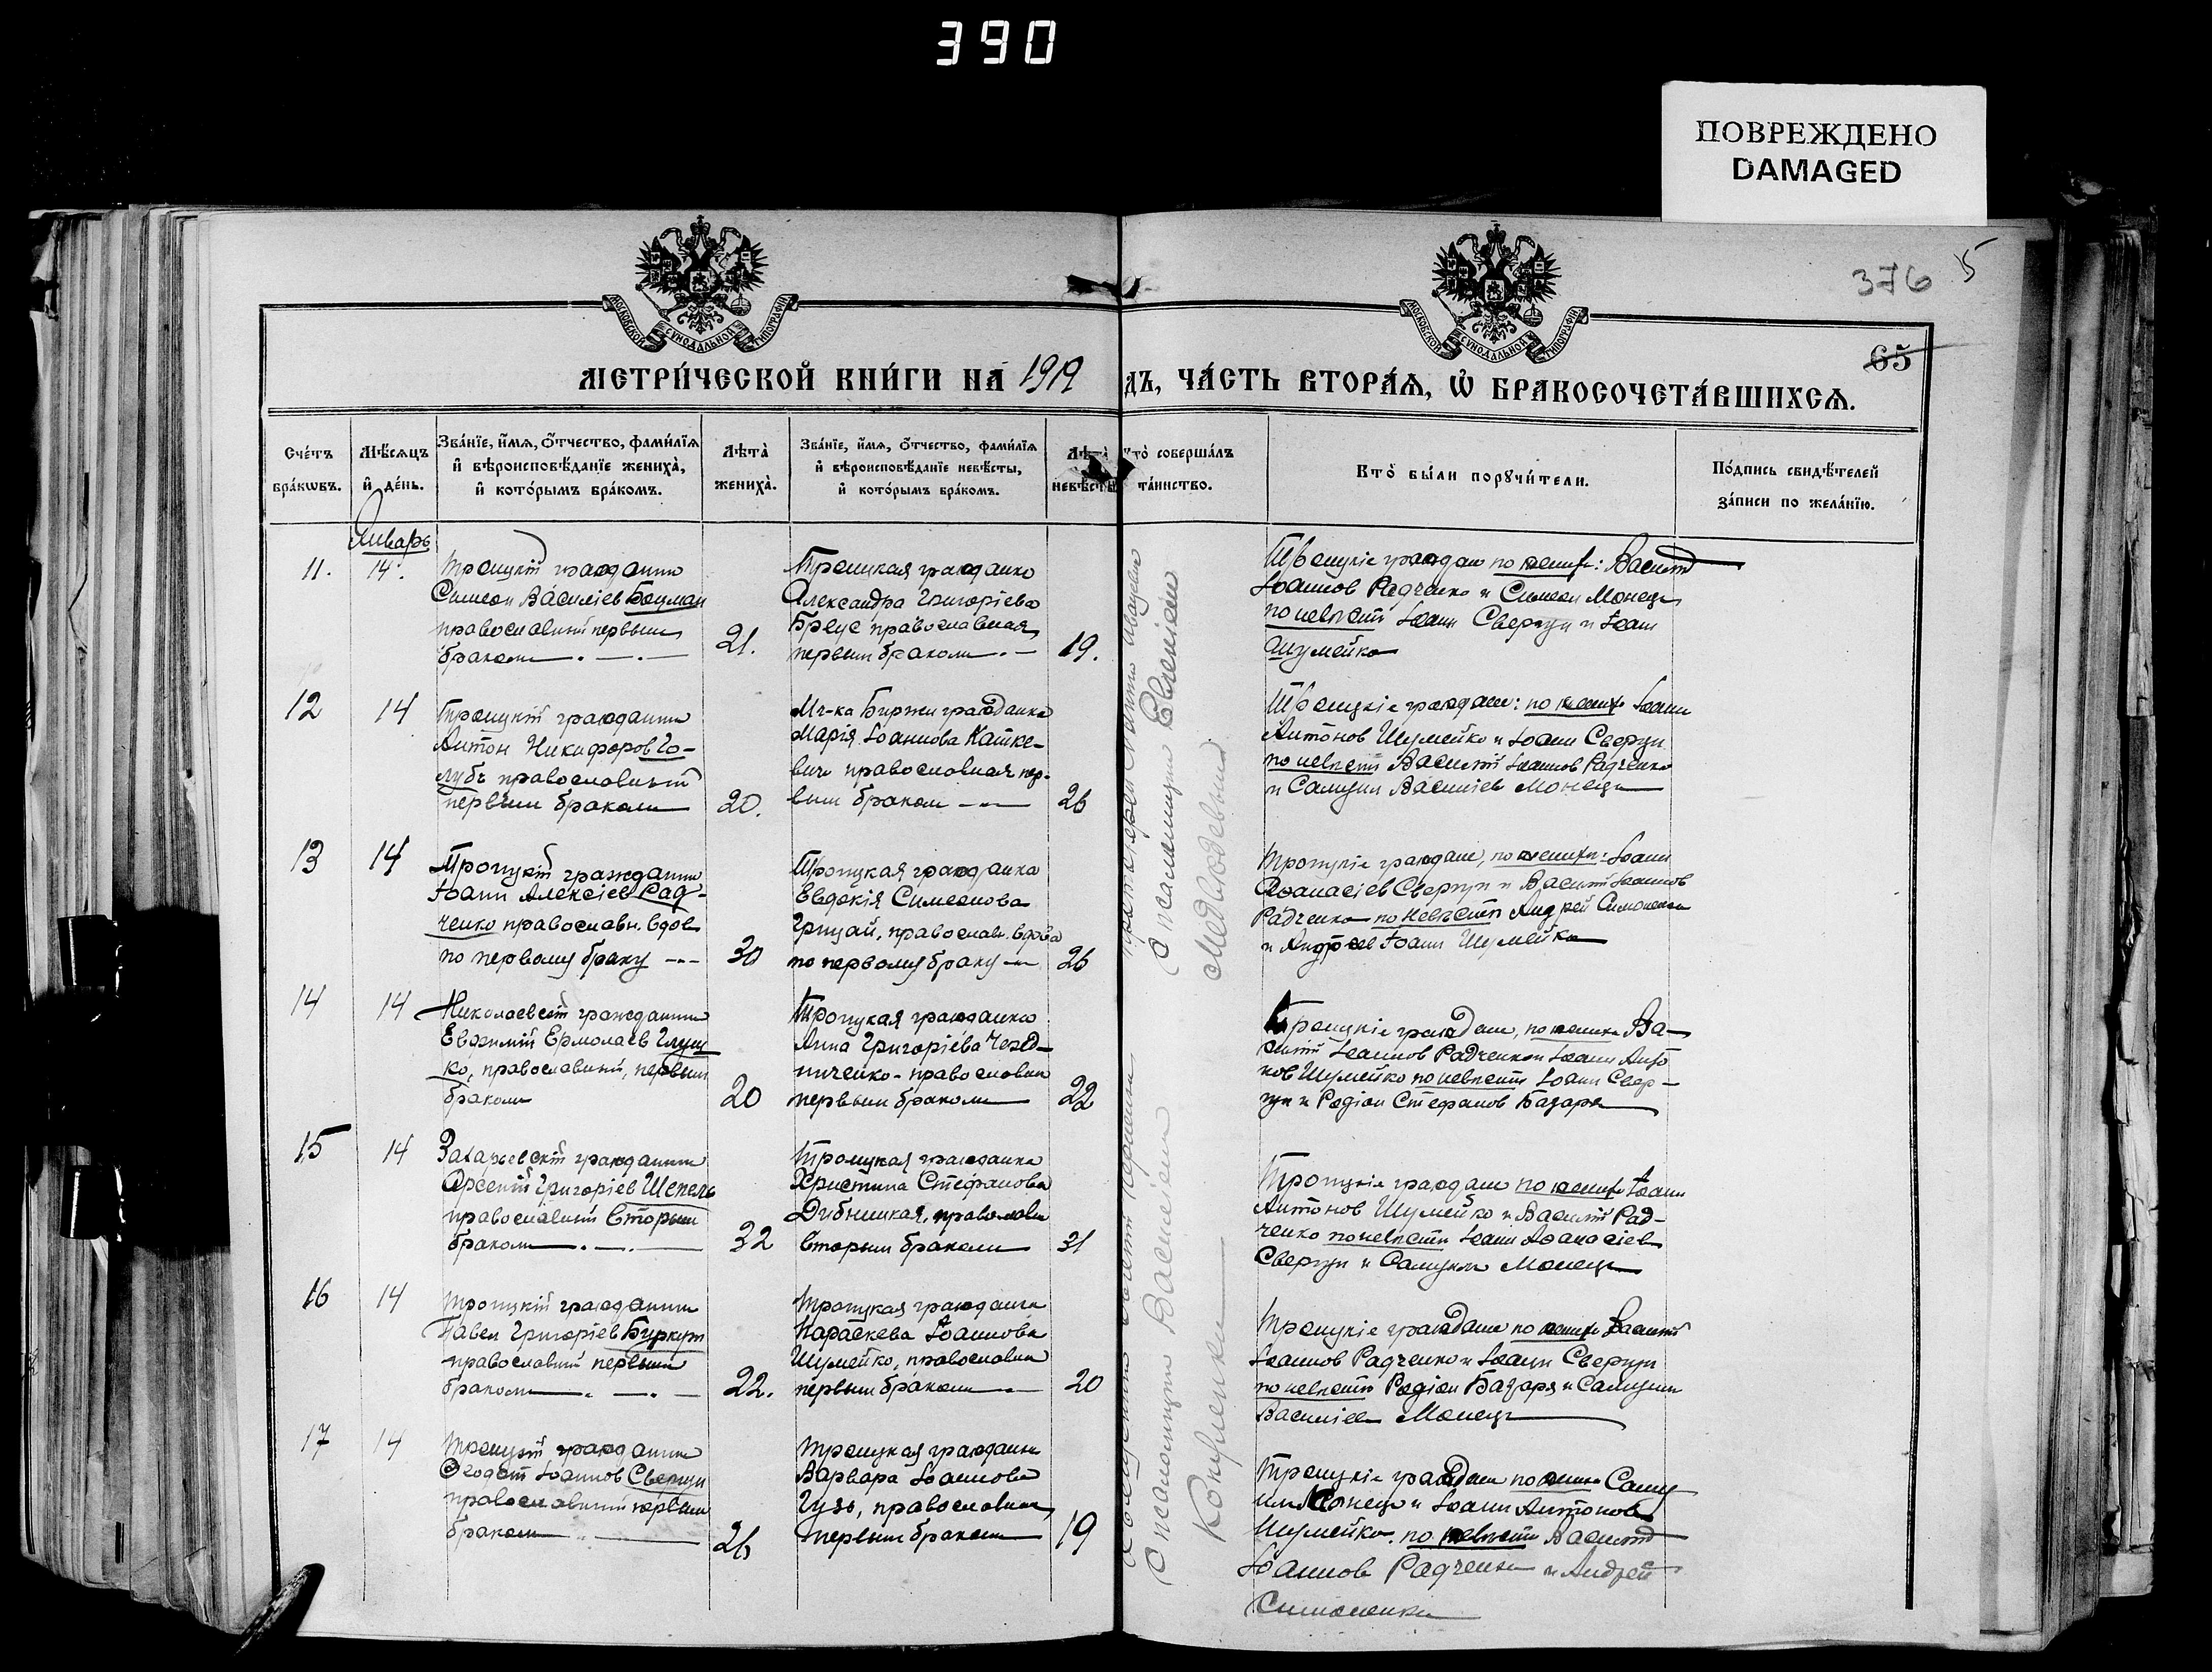 390
ПОВРЕЖДЕНО
DAMAGED
376
5
МОСКОВСКОЙ СѴНОДАЛЬНОЙ ТИПОГРАФІИ
МОСКОВСКОЙ СѴНОДАЛЬНОЙ ТИПОГРАФІИ
65
МЕТРИ́ЧЕСКОЙ КНИ́ГИ НА 1919
ДЪ, ЧА́СТЬ ВТОРА́Ѧ, Ѡ БРАКОСОЧЕТА́ВШИХСѦ.
Сче́тъ
бра́кѡвъ.
Мѣ́сѧцъ
и де́нь.
Зва́нїе, и́мѧ, ѻ́тчество, фами́лїѧ
и вѣроисповѣ́данїе жениха̀,
и кото́рымъ бра́комъ.
Лѣта̀
жениха̀.
Зва́нїе, и́мѧ, ѻ́тчество, фами́лїѧ
и вѣроисповѣ́данїе невѣ́сты,
и кото́рымъ бра́комъ.
Лѣта̀
невѣ́сты
то̀ соверша́лъ
та́инство.
Кто̀ бы́ли порꙋчи́тели.
По́дпись свидѣ́телей
за́писи по жела́нїю.
Январь
11.
14.
Троицкій гражданин
Симеон Василіев Боцман
православный первым
браком
21.
Троицкая гражданка
Александра Григоріева
Бреус православная,
первым браком
19.
Троицкіе граждане по жениху: Василій
Іоаннов Радченко и Симеон Монец
по невесте Іоанн Свергун и Іоанн
Шумейко
12
14
Троицкій гражданин
Антон Никифоров Го-
лубь православный
первым браком
20.
М-ка Биржи гражданка
Марія Іоаннова Катке-
вич православная пер-
вым браком
26
Троицкіе граждане: по жениху Іоанн
Антонов Шумейко и Іоанн Свергун
по невесте Василій Іоаннов Радченко
и Самуил Василіев Монец
13
14
Троицкій гражданин
Іоанн Алексіев Рад-
ченко православн. вдов
по первому браку
30
Троицкая гражданка
Евдокія Симеонова
Грицай, православ. вдова
по первому браку
26
Троицкіе граждане, по жениху: Іоанн
Афанасіев Свергун и Василій Іоаннов
Радченко по невесте Андрей Симоненко
и Іоанн Шумейко
14
14
Николаевскій гражданин
Евфимій Ермолаев Глущ-
ко, православный, первым
браком
20
Троицкая гражданка
Анна Григоріева Черед-
ниченко - православная
первым браком
22
Троицкіе граждане, по жениху Ва-
силій Іоаннов Радченко и Іоанн Анто
нов Шумейко по невесте Іоанн Свер-
гун и Родіон Стефанов Базаря
15
14
Захарьевскій гражданин
Арсеній Григоріев Шепель
православный вторым
браком
32
Троицкая гражданка
Христина Стефанова
Дибницкая, православн
вторым браком
31
Троицкіе граждане по жениху Іоанн
Антонов Шумейко и Василій Рад-
ченко по невесте Іоанн Афанасіев
Свергун и Самуил Монец
16
14
Троицкій гражданин
Павел Григоріев Биркун
православный первым
браком
22.
Троицкая гражданка
Параскева Іоаннова
Шумейко, православная
первым браком
20
Троицкіе граждане по жениху Василій
Іоаннов Радченко и Іоанн Свергун
по невесте Родіон Базаря и Самуил
Василіев Монец
17
14
Троицкій гражданин
Феодот Іоаннов Свергун
православный первым
браком
26
Троицкая гражданка
Варвара Іоаннова
Гузь, православная,
первым браком
19
Троицкіе граждане по жениху Саму
ил Монец и Іоанн Антонов
Шумейко, по невесте Василій
Іоаннов Радченко и Андрей
Симоненко
С псаломщиком Евгеніем
Медвѣдевым
С псаломщиком Василіем